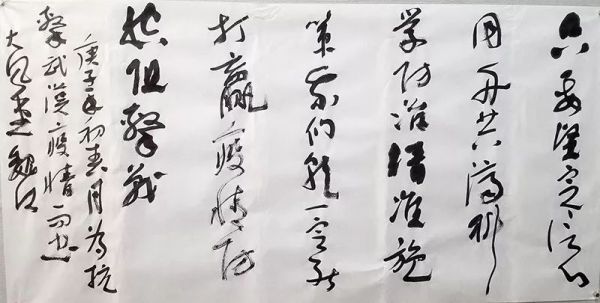 只要堅定信心
同舟共濟科
学防治精准施
策我们就一定能
打贏疫情防
控阻擊战
庚子年初春月为抗
擊武漢疫情而书
大风